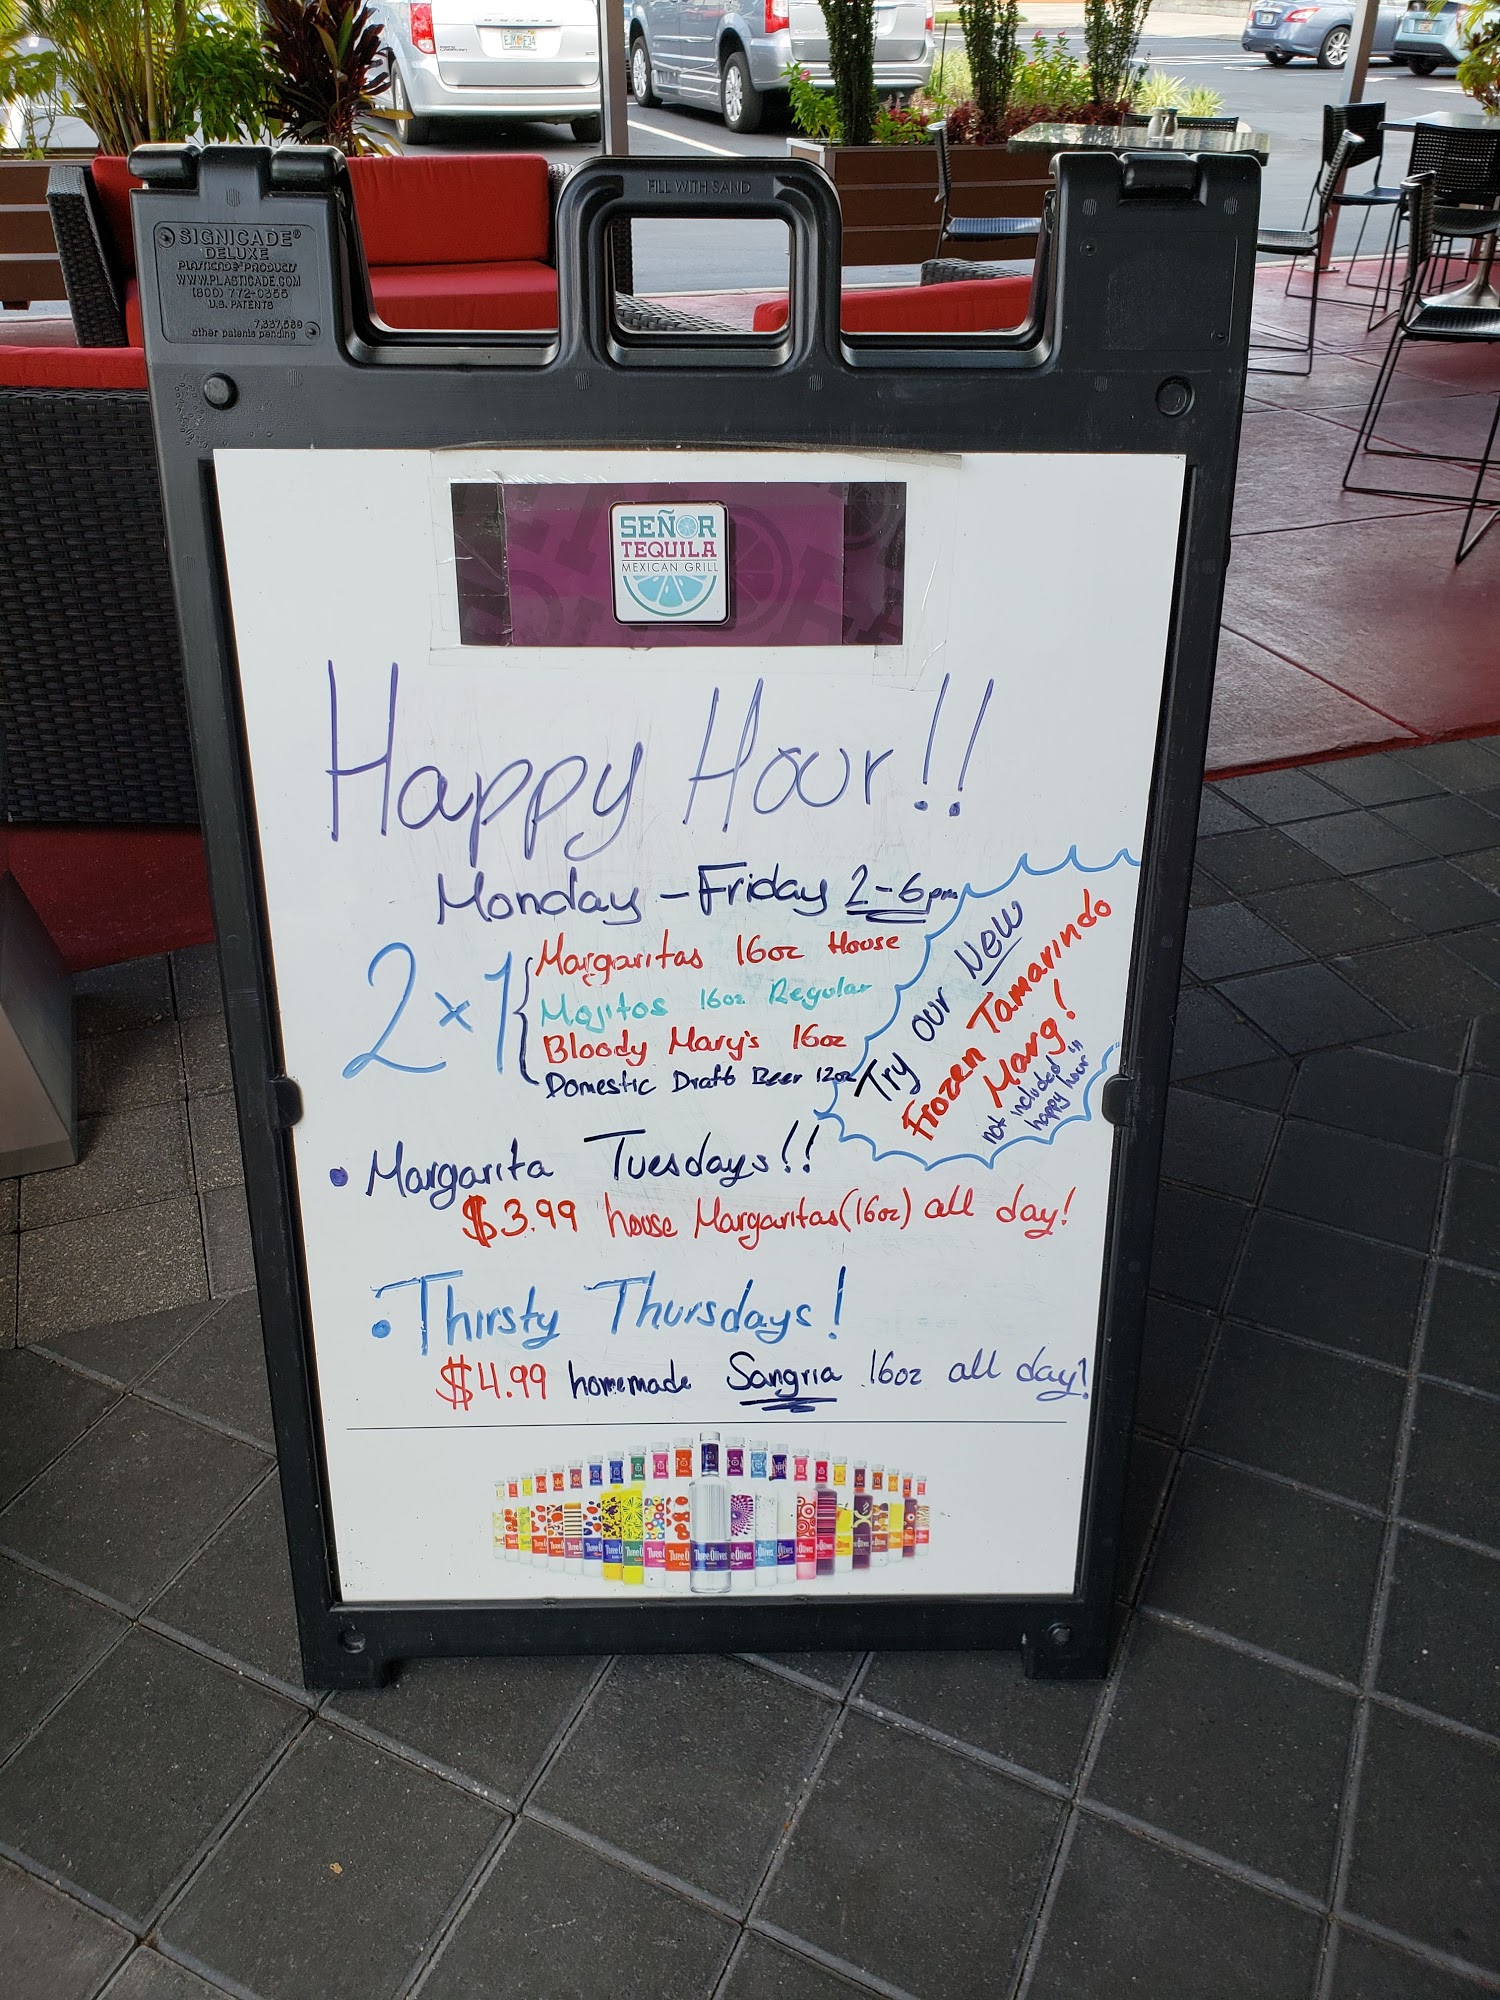 FILL WITH SAND
SIGNICADE®
DELUXE
PLASTICADE® PRODUCTS
WWW.PLASTICADE.COM
(800) 772-0355
U.S. PATENTS
other patents pending
SEÑOR
TEQUILA
MEXICAN GRILL
Happy Hour!!
Monday - Friday 2-6pm
2x1
Margaritas 16oz House
Mojitos 16oz Regular
Bloody Mary's 16oz
Domestic Draft Beer 12oz
Try our New
Frozen Tamarindo
Marg!
not included in
happy hour
• Margarita Tuesdays!!
$3.99 house Margaritas (16oz) all day!
• Thirsty Thursdays!
$4.99 homemade Sangria 16oz all day!
Three Olives